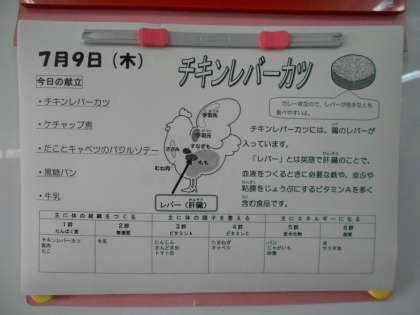 7月9日(木)
チキンレバーカツ
今日の献立
カレー味なので、レバーが苦手な人も
食べやすいよ。
・チキンレバーカツ
・ケチャップ煮
・たことキャベツのバジルソテー
・黒糖パン
・牛乳
手羽先
手羽元
ささみ
すなぎも
むね肉
もも
レバー(肝臓)
かんぞう
チキンレバーカツには、鶏のレバーが
入っています。
「レバー」とは英語で肝臓のことで、
血液をつくるときに必要な鉄や、皮ふや
粘膜をじょうぶにするビタミンAを多く
含む食品です。
主に体の組織をつくる 主に体の調子を整える 主にエネルギーになる
1群 2群 3群 4群 5群 6群
たんぱく質 無機質 ビタミンA ビタミンC 炭水化物 脂質
チキンレバーカツ 牛乳 にんじん たまねぎ パン 油
さんどまめ キャベツ じゃがいも サラダ油
たこ トマト缶 砂糖